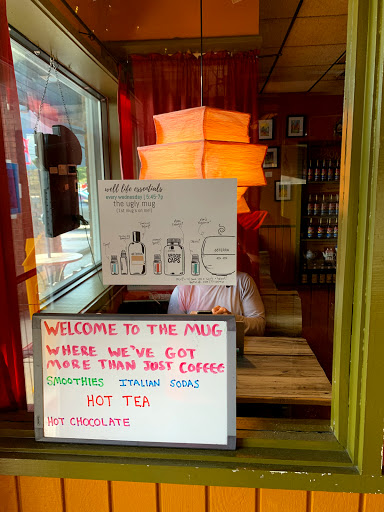 well life essentials
every wednesday | 5:45-7p
the ugly mug
WELCOME TO THE MUG
WHERE WE'VE GOT
MORE THAN JUST COFFEE
SMOOTHIES ITALIAN SODAS
HOT TEA
HOT CHOCOLATE